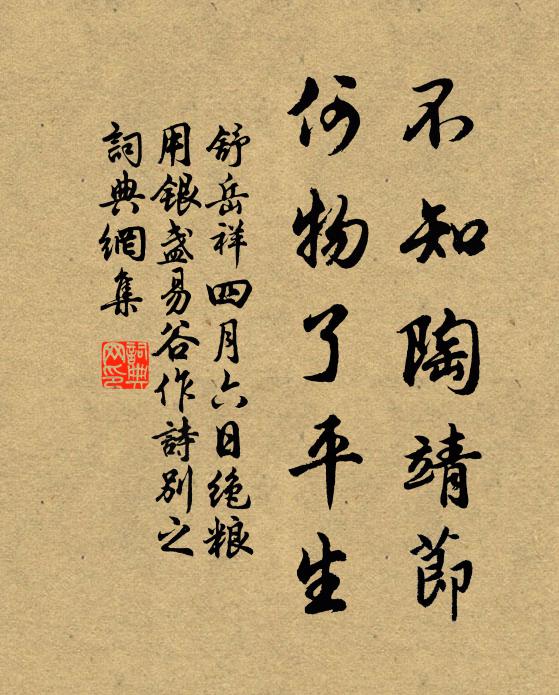 不知陶靖節
何物了平生
舒岳祥四月六日绝粮
用銀盞易谷作詩別之
詞典網集
詞典
网印